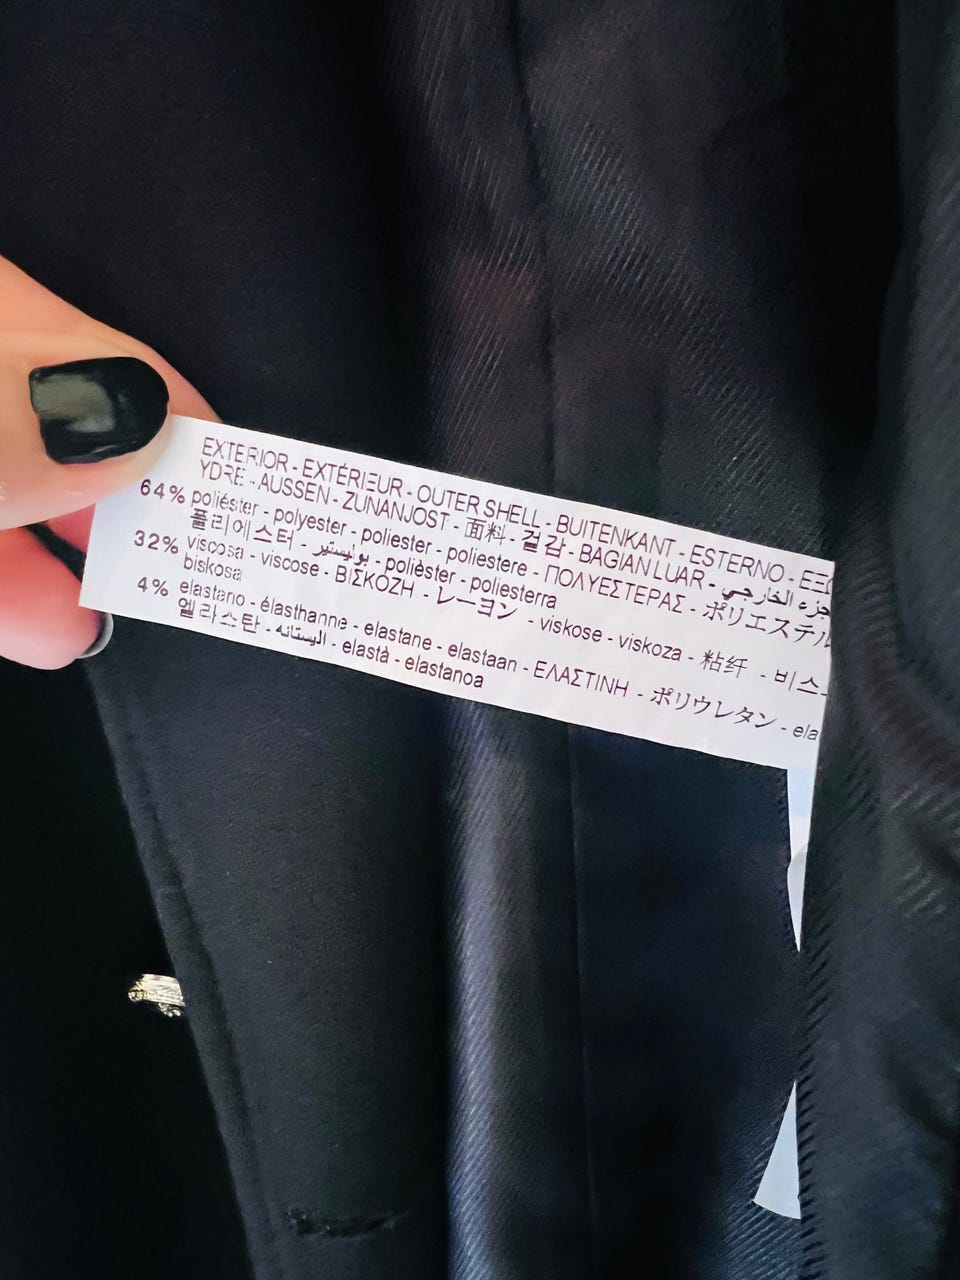 EXTERIOR - EXTÉRIEUR - OUTER SHELL - BUITENKANT - ESTERNO - ΕΞΩ
YDRE - AUSSEN - ZUNANJOST - 面料 - 겉감 - BAGIAN LUAR - الجزء الخارجي
64% poliéster - polyester - poliester - poliestere - ΠΟΛΥΕΣΤΕΡΑΣ - ポリエステル
폴리에스터 - بوليستير - polièster - poliesterra
32% viscosa - viscose - ΒΙΣΚΟΖΗ - レーヨン - viskose - viskoza - 粘纤 - 비스
biskosa
4% elastano - élasthanne - elastane - elastaan - ΕΛΑΣΤΙΝΗ - ポリウレタン - ela
엘라스탄 - اليستانه - elastà - elastanoa